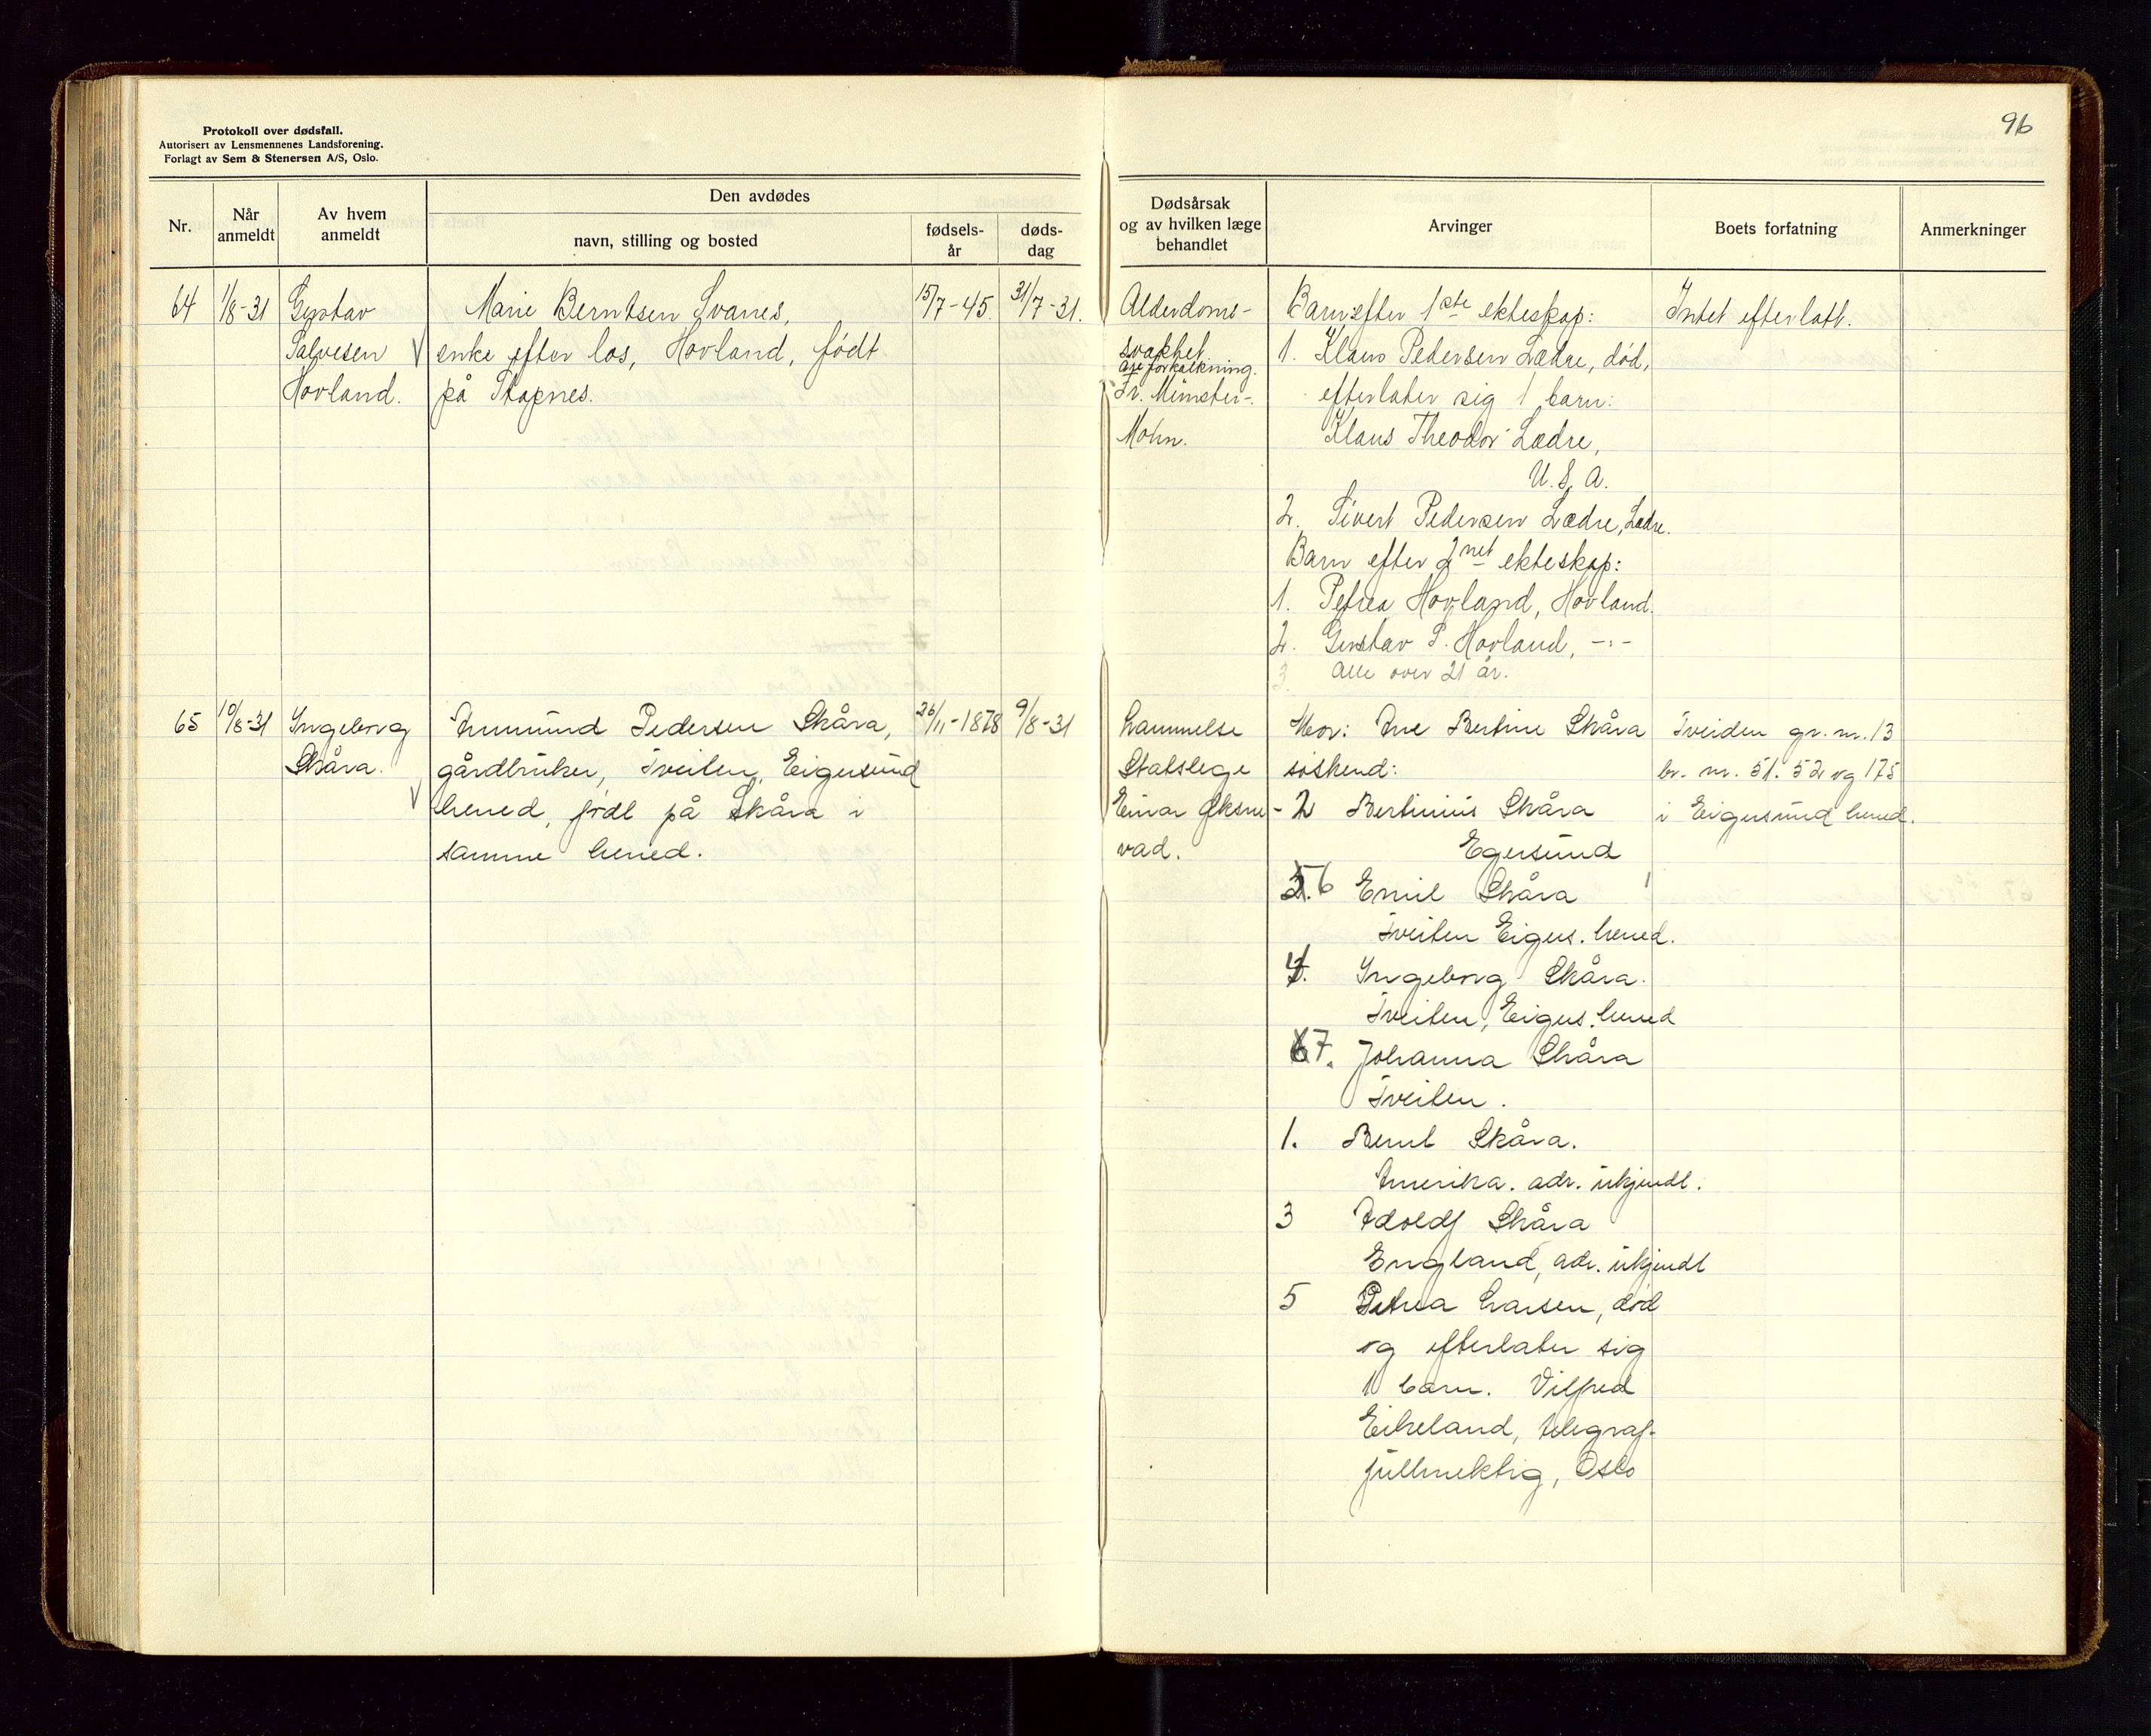 96
Protokoll over dødsfall.
Autorisert av Lensmennenes Landsforening.
Forlagt av Sem & Stenersen A/S, Oslo.
Nr.
Når anmeldt
Av hvem anmeldt
Den avdødes
navn, stilling og bosted
fødsels-år
døds-dag
Dødsårsak og av hvilken læge behandlet
Arvinger
Boets forfatning
Anmerkninger
64
1/8-31
Gustav
Salvesen
Hovland.
Marie Berntsen Svanes,
enke efter los, Hovland, født
på Stapnes.
15/7-45.
31/7-31.
Alderdoms-
svakhet
åreforkalkning.
Dr. Münster-
Mohn.
Barn efter 1ste ekteskap:
1. Klaus Pedersen Lædre, død,
efterlater sig 1 barn:
Klaus Theodor Lædre,
U.S.A.
2. Sivert Pedersen Lædre, Lædre.
Barn efter 2net ekteskap:
1. Petrea Hovland, Hovland.
2. Gustav S. Hovland, -:-
3. Alle over 21 år.
Intet efterlatt.
65
10/8-31
Ingeborg
Skåra.
Amund Pedersen Skåra,
gårdbruker, Tveiten, Eigersund
hered, født på Skåra i
samme hered.
26/11-1878
9/8-31
Lammelse
Statslege
Einar Øksne-
vad.
Mor: Ane Bertine Skåra
søskend:
2 Bertinius Skåra
Egersund
6 Emil Skåra
Tveiten Eigers. hered.
4. Ingeborg Skåra.
Tveiten, Eigers. hered
7. Johanna Skåra
Tveiten.
1. Bernt Skåra.
Amerika. adr. ukjendt.
3 Adolf Skåra
England, adr. ukjendt
5 Petrea Larsen, død
og efterlater sig
1 barn. Vilfred
Eikeland, telegraf-
fullmektig, Oslo
Tveiden gr. nr. 13
br. nr. 51. 52 og 175
i Eigersund hered.